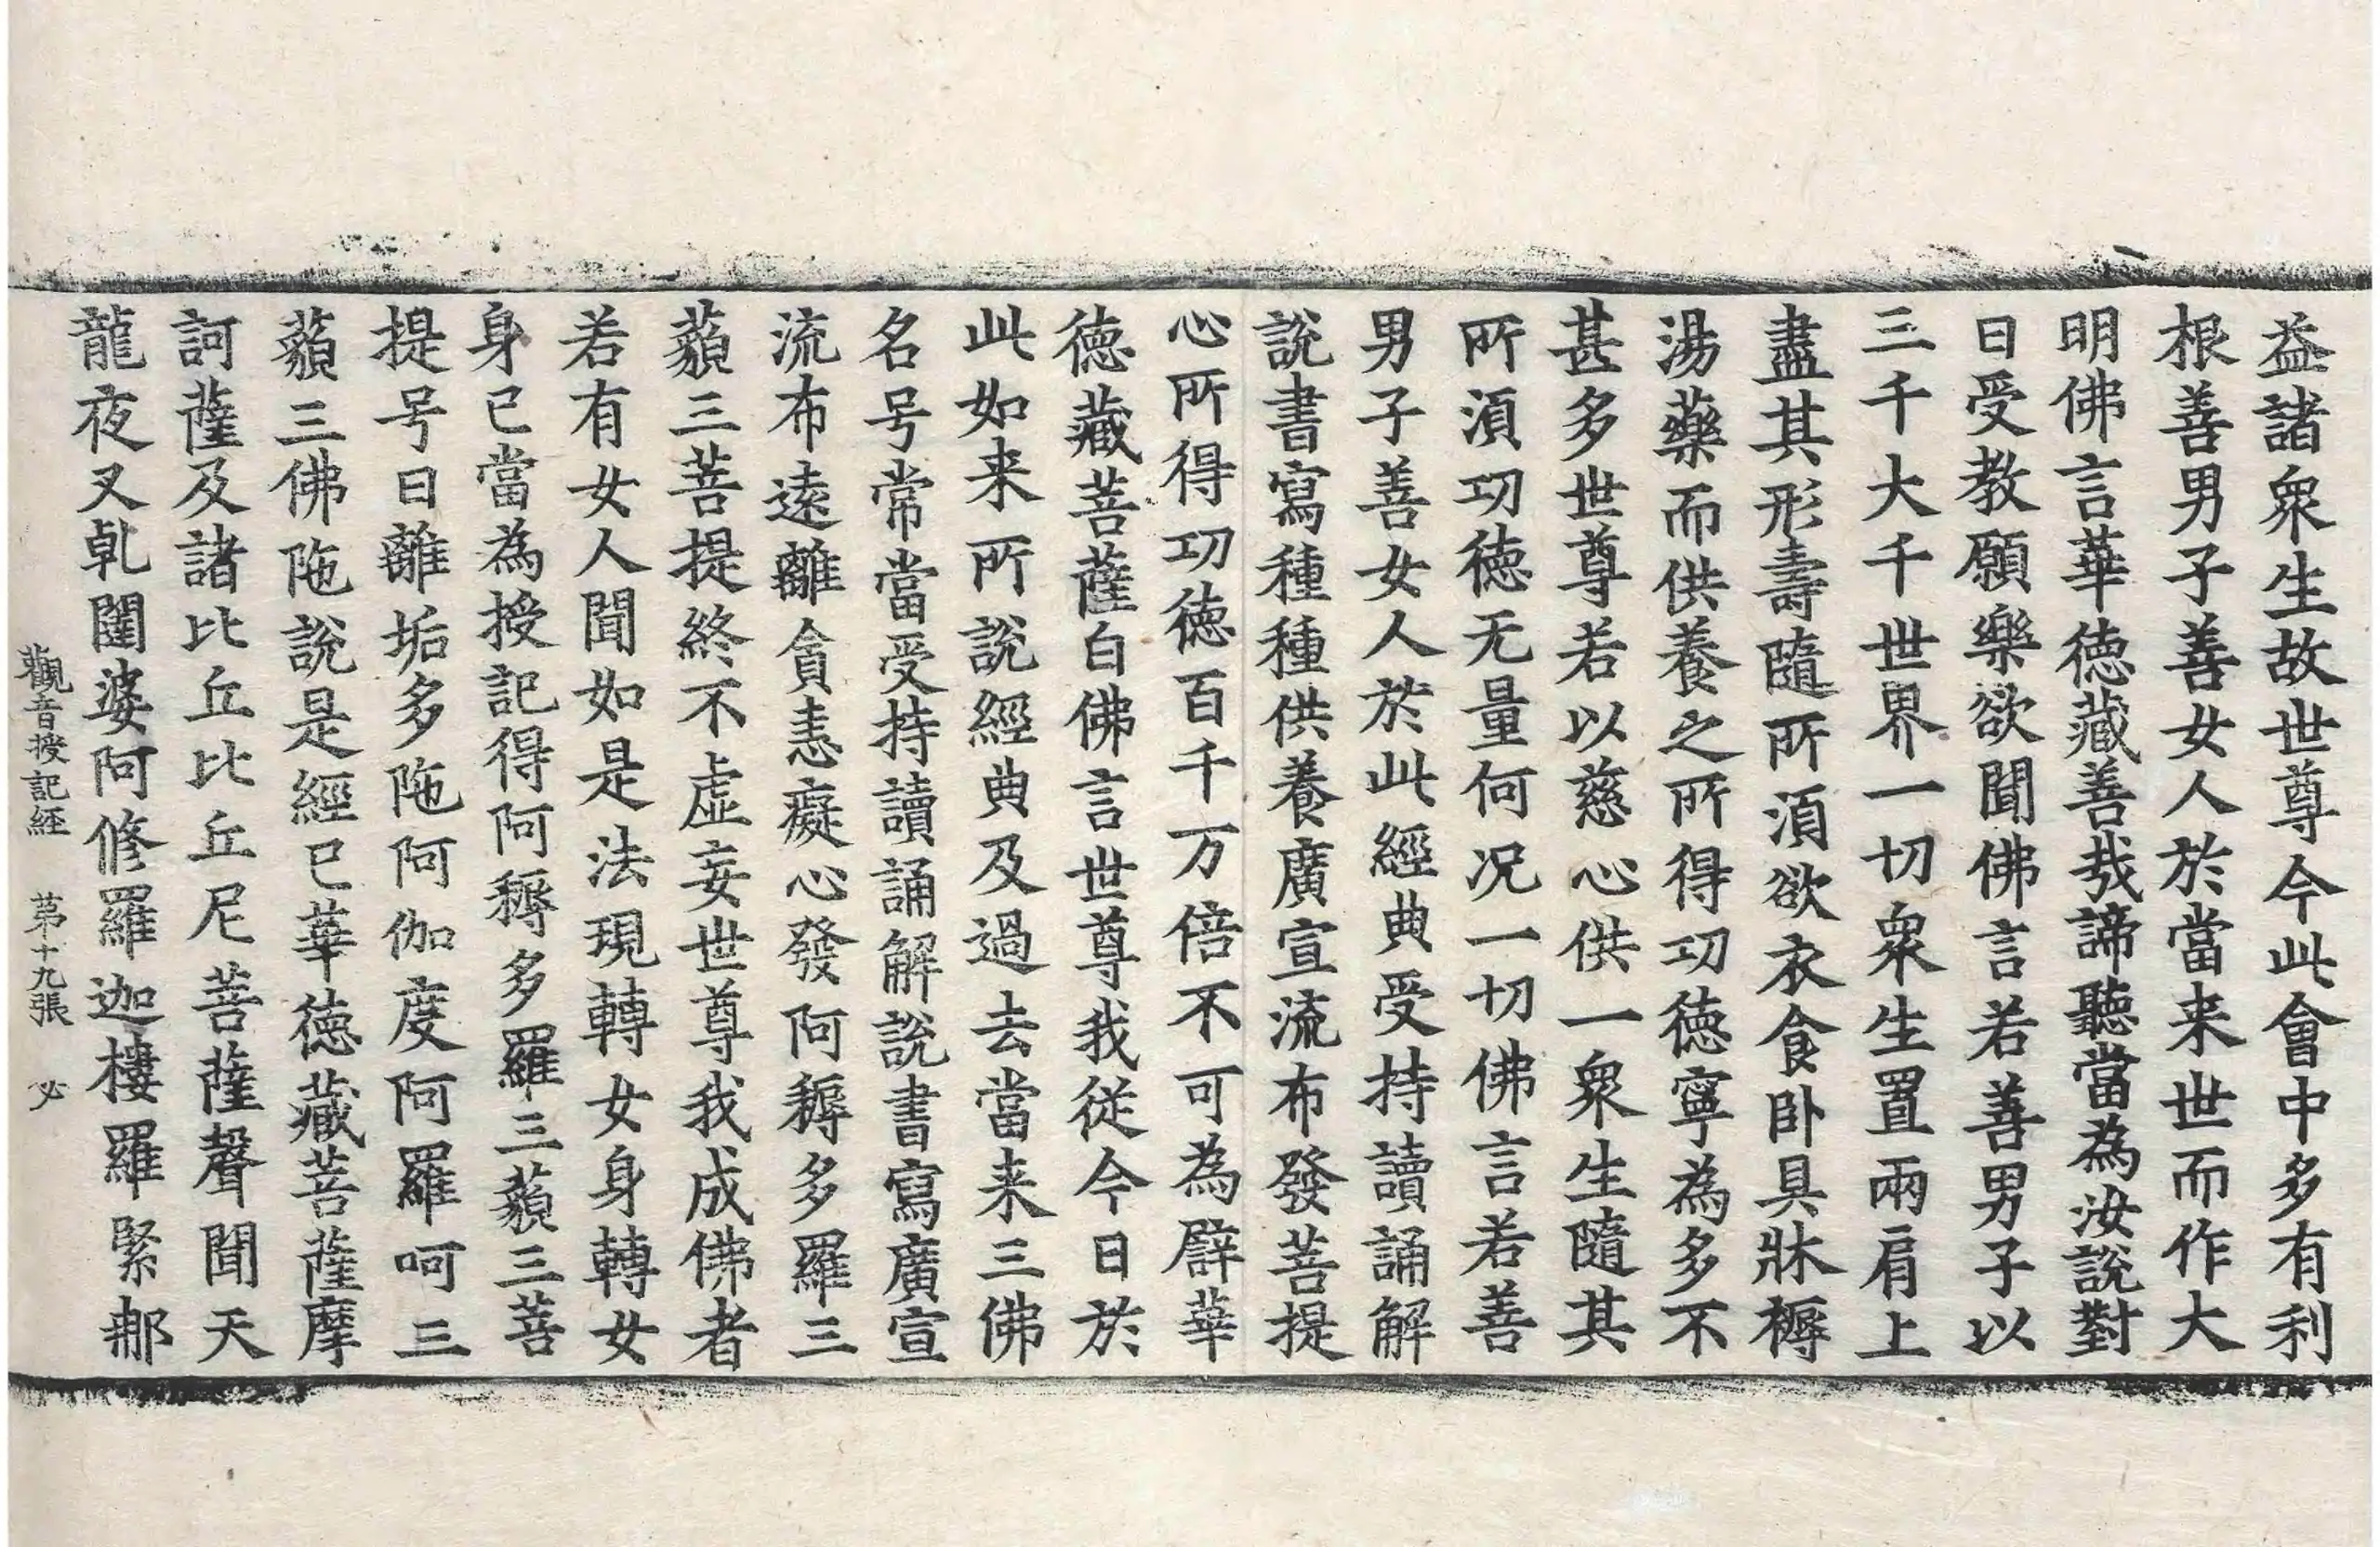 益諸衆生故世尊今此會中多有利
根善男子善女人於當来世而作大
明佛言華德藏善哉諦聽當為汝說對
曰受教願樂欲聞佛言若善男子以
三千大千世界一切衆生置兩肩上
盡其形壽隨所湏欲衣食卧具牀褥
湯藥而供養之所得功德寧為多不
甚多世尊若以慈心供一衆生隨其
所湏功德无量何况一切佛言若善
男子善女人於此經典受持讀誦解
說書寫種種供養廣宣流布發菩提
心所得功德百千万倍不可為譬華
德藏菩薩白佛言世尊我從今日於
此如来所說經典及過去當来三佛
名号常當受持讀誦解說書寫廣宣
流布遠離貪恚癡心發阿耨多羅三
藐三菩提終不虛妄世尊我成佛者
若有女人聞如是法現轉女身轉女
身已當為授記得阿耨多羅三藐三菩
提号曰離垢多陁阿伽度阿羅呵三
藐三佛陁說是經已華德藏菩薩摩
訶薩及諸比丘比丘尼菩薩聲聞天
龍夜叉乹闥婆阿修羅迦樓羅緊那
觀音授記經 第十九張 必